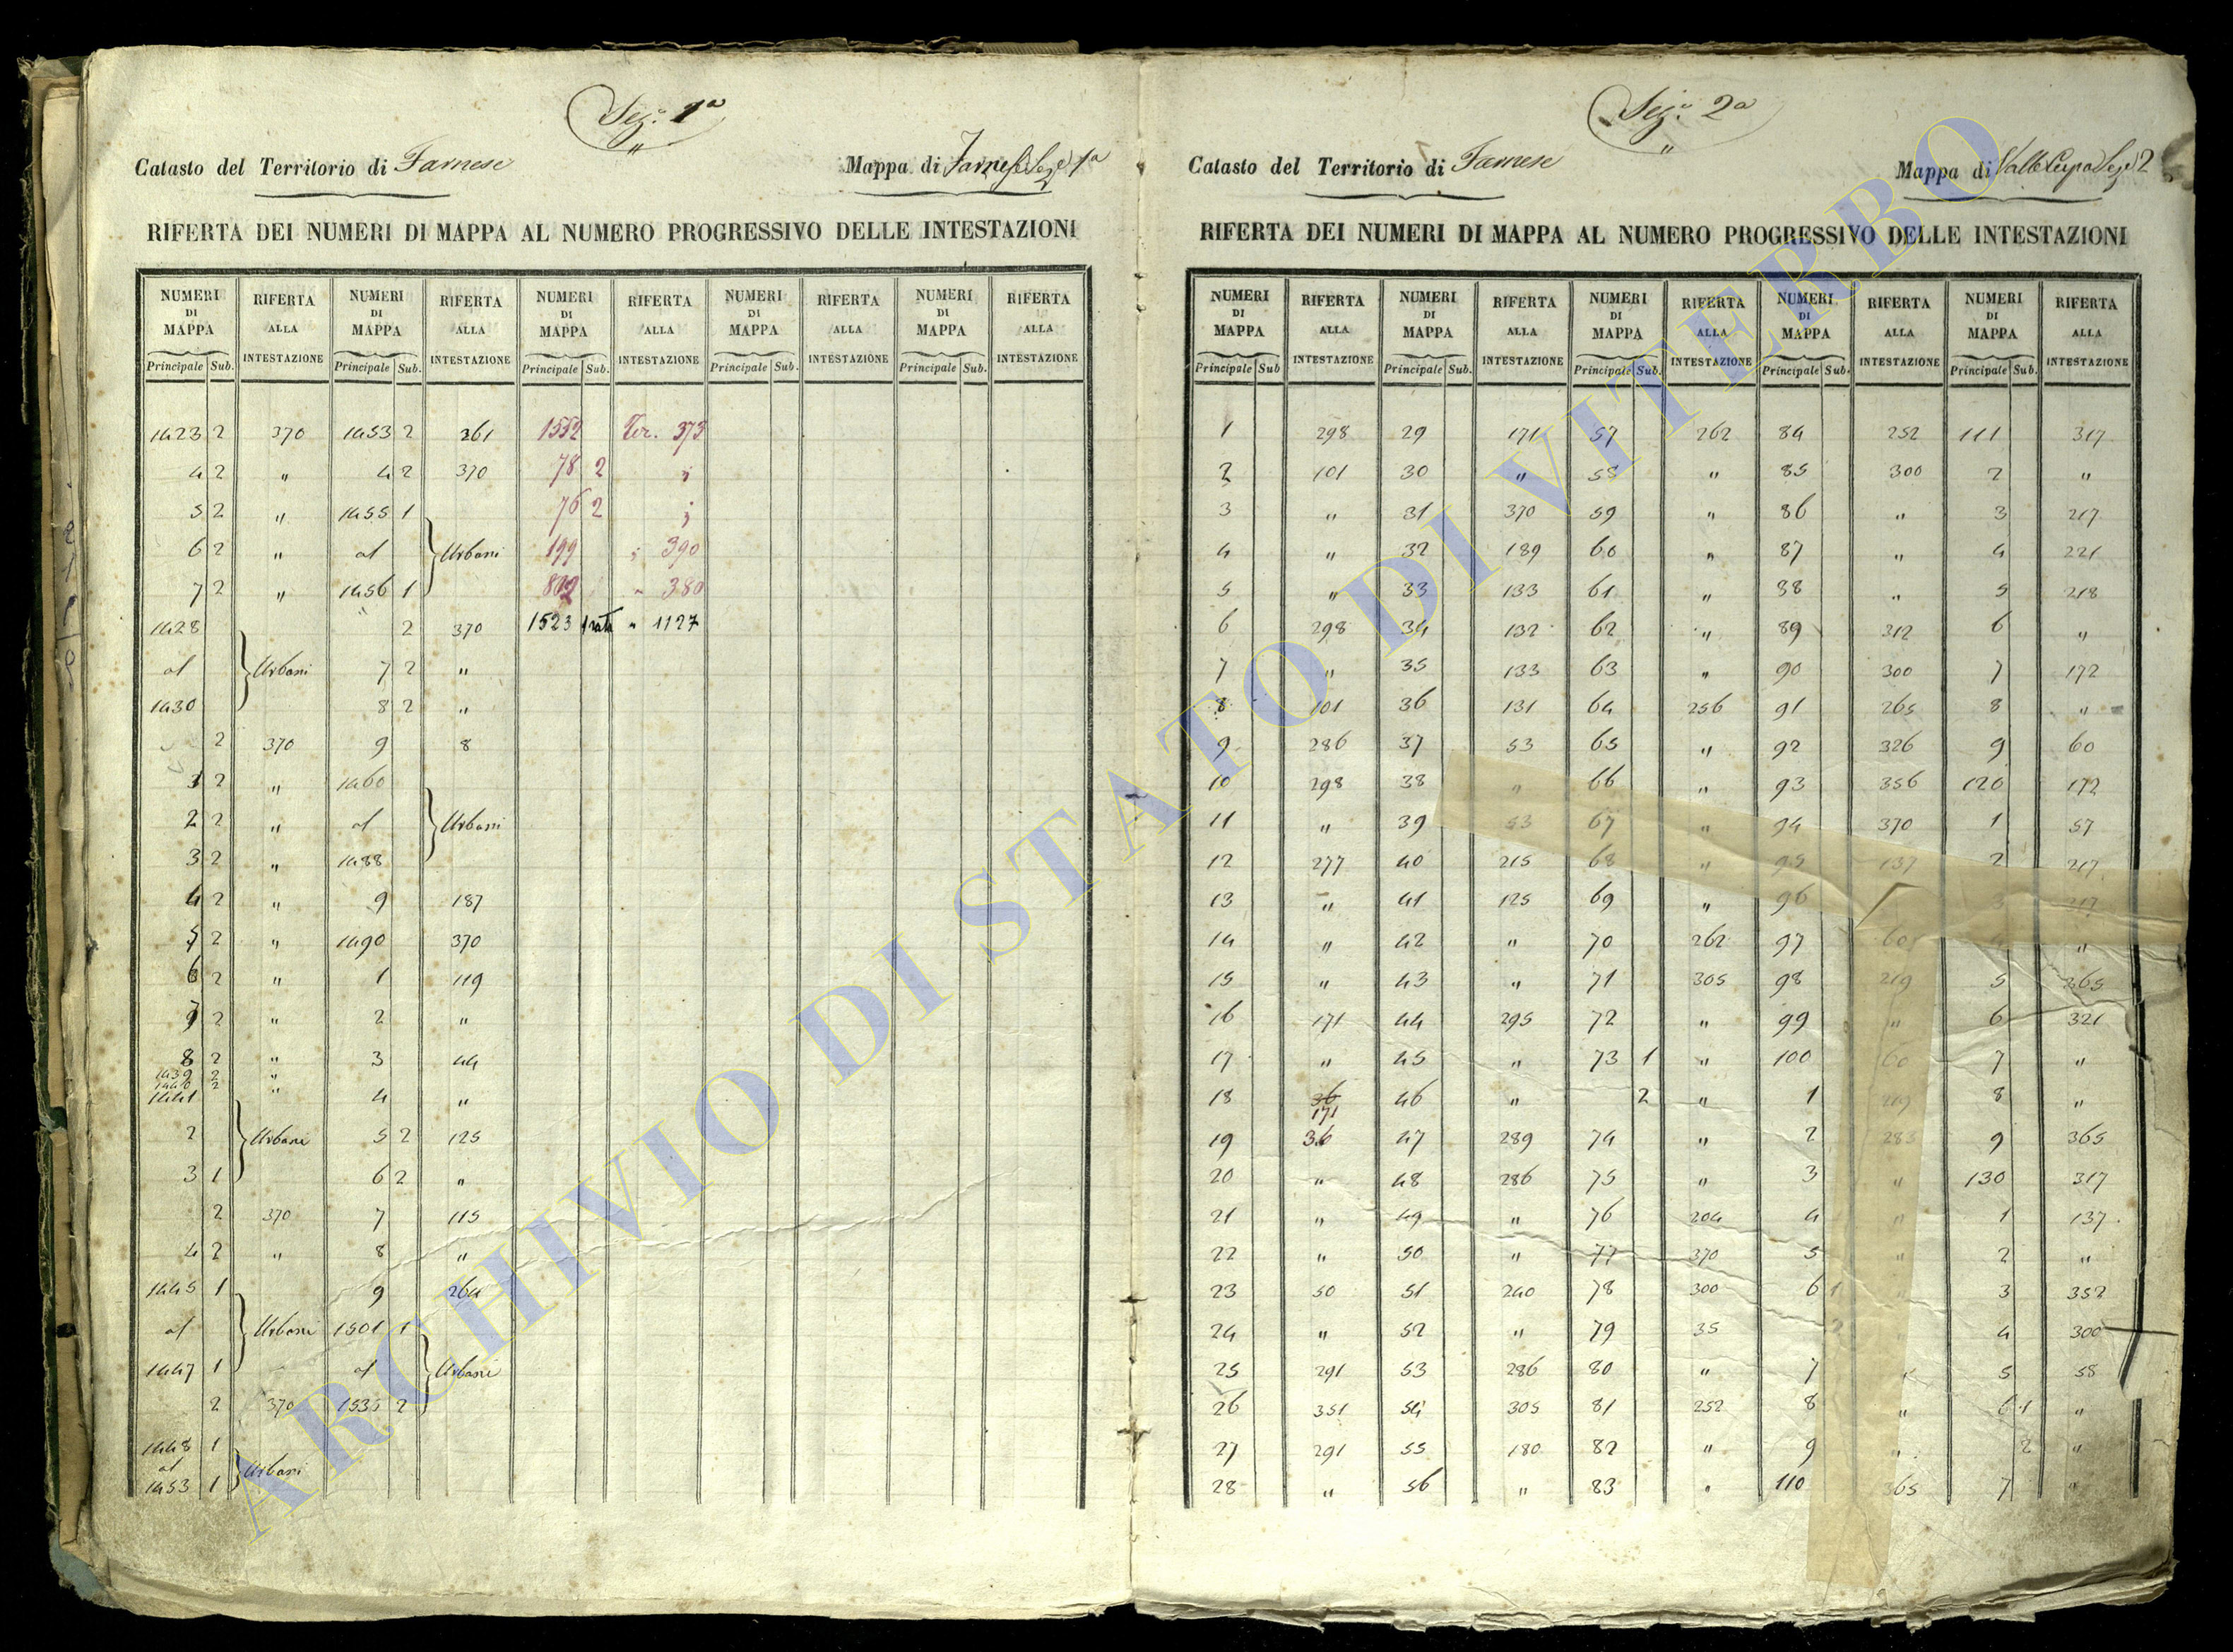 Sez.e 1a
Catasto del Territorio di Farnese
Mappa di Farnese Sez.e 1a
RIFERTA DEI NUMERI DI MAPPA AL NUMERO PROGRESSIVO DELLE INTESTAZIONI
NUMERI DI MAPPA RIFERTA ALLA INTESTAZIONE NUMERI DI MAPPA RIFERTA ALLA INTESTAZIONE NUMERI DI MAPPA RIFERTA ALLA INTESTAZIONE NUMERI DI MAPPA RIFERTA ALLA INTESTAZIONE NUMERI DI MAPPA RIFERTA ALLA INTESTAZIONE
Principale Sub. Principale Sub. Principale Sub. Principale Sub. Principale Sub.
1423 2 370 1453 2 261 1552 Ter. 373
4 2 " 4 2 370 78 2 "
5 2 " 1455 1 76 2 "
6 2 " al Urbani 199 " 390
7 2 " 1456 1 802 " 380
1428 2 370 1523 " 1127
al Urbani 7 2 "
1430 8 2 "
2 370 9 8
1 2 " 1460
2 2 " al Urbani
3 2 " 1488
4 2 " 9 187
5 2 " 1490 370
6 2 " 1 119
7 2 " 2 "
8 2 " 3 44
1439 2 "
1440 2 " 4 "
1441
2 Urbani 5 2 125
3 1 6 2 "
2 370 7 115
4 2 " 8 "
1445 1 9 264
al Urbani 1501 1
1447 1 al Urbani
2 370 1535 2
1448 1
al Urbani
1453 1
Sez.e 2a
Catasto del Territorio di Farnese
Mappa di Valle Cupa Sez.e 2
RIFERTA DEI NUMERI DI MAPPA AL NUMERO PROGRESSIVO DELLE INTESTAZIONI
NUMERI DI MAPPA RIFERTA ALLA INTESTAZIONE NUMERI DI MAPPA RIFERTA ALLA INTESTAZIONE NUMERI DI MAPPA RIFERTA ALLA INTESTAZIONE NUMERI DI MAPPA RIFERTA ALLA INTESTAZIONE NUMERI DI MAPPA RIFERTA ALLA INTESTAZIONE
Principale Sub Principale Sub. Principale Sub. Principale Sub. Principale Sub.
1 298 29 171 57 262 84 252 111 317
2 101 30 " 58 " 85 300 2 "
3 " 31 370 59 " 86 " 3 217
4 " 32 189 60 " 87 " 4 221
5 " 33 133 61 " 88 " 5 218
6 298 34 132 62 " 89 212 6 "
7 " 35 133 63 " 90 300 7 172
8 101 36 131 64 256 91 265 8 "
9 286 37 53 65 " 92 326 9 60
10 298 38 " 66 " 93 356 120 172
11 " 39 53 67 " 94 370 1 57
12 277 40 215 68 " 95 137 2 217
13 " 41 125 69 " 96 3 217
14 " 42 " 70 262 97 "
15 " 43 " 71 305 98 219 5 365
16 171 44 295 72 " 99 " 6 321
17 " 45 " 73 1 " 100 60 7 "
18 36 171 46 " 2 " 1 219 8 "
19 36 47 289 74 " 2 283 9 365
20 " 48 286 75 " 3 " 130 317
21 " 49 " 76 204 4 " 1 137
22 " 50 " 77 370 5 " 2 "
23 50 51 240 78 300 6 1 " 3 352
24 " 52 " 79 35 2 " 4 300
25 291 53 286 80 " 7 " 5 58
26 351 54 305 81 252 8 " 6 1 "
27 291 55 180 82 " 9 " 2 "
28 " 56 " 83 " 110 365 7 "
ARCHIVIO DI STATO DI VITERBO